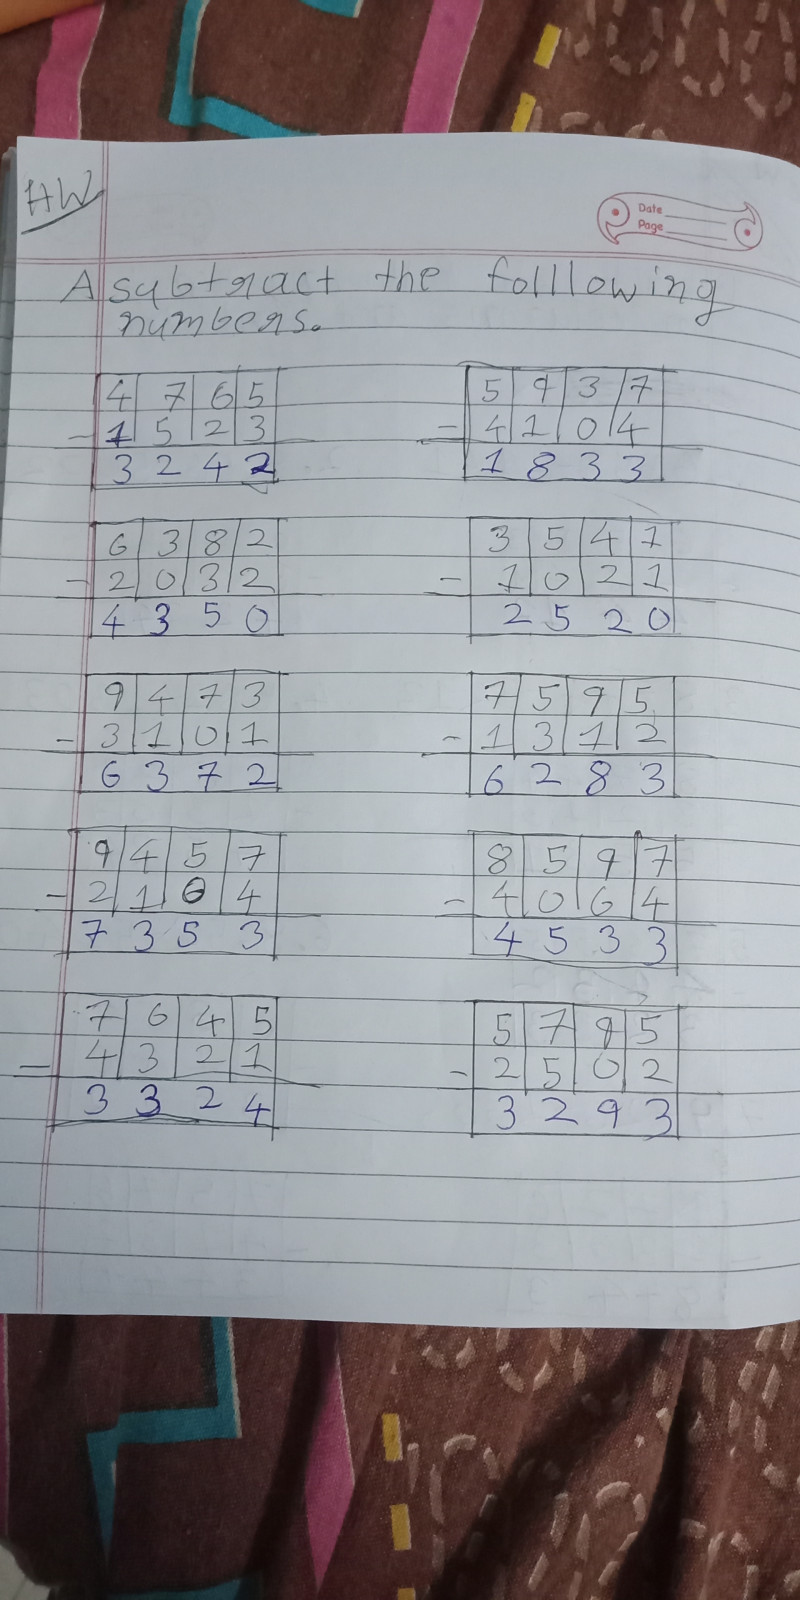 HW
Date
Page
A subtract the folllowing
numbers.
4 7 6 5
- 1 5 2 3
3 2 4 2
5 9 3 7
- 4 1 0 4
1 8 3 3
6 3 8 2
- 2 0 3 2
4 3 5 0
3 5 4 1
- 1 0 2 1
2 5 2 0
9 4 7 3
- 3 1 0 1
6 3 7 2
7 5 9 5
- 1 3 1 2
6 2 8 3
9 4 5 7
- 2 1 0 4
7 3 5 3
8 5 9 7
- 4 0 6 4
4 5 3 3
7 6 4 5
- 4 3 2 1
3 3 2 4
5 7 9 5
- 2 5 0 2
3 2 9 3